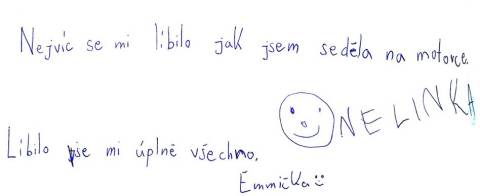 Nejvíc se mi líbilo jak jsem seděla na motorce.
NELINKA
Líbilo se mi úplně všechno.
Emmička